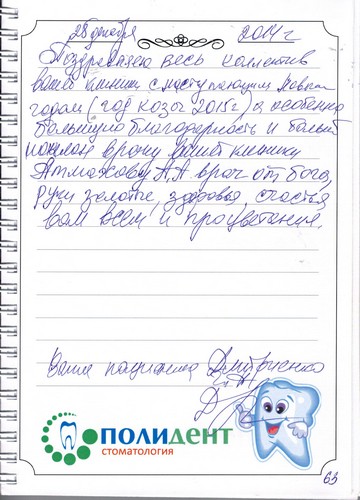 28 декабря 2014 г
Поздравляю весь коллектив
вашей клиники с наступающим Новым
годом (год козы 2015г) и особенно
большую благодарность и большой
врачу вашей клиники
Атмажову А.А. врач от бога,
руки золотые, здоровья, счастья
вам всем и процветания.
Ваша пациентка Дмитриенко
ПОЛИДЕНТ
СТОМАТОЛОГИЯ
63